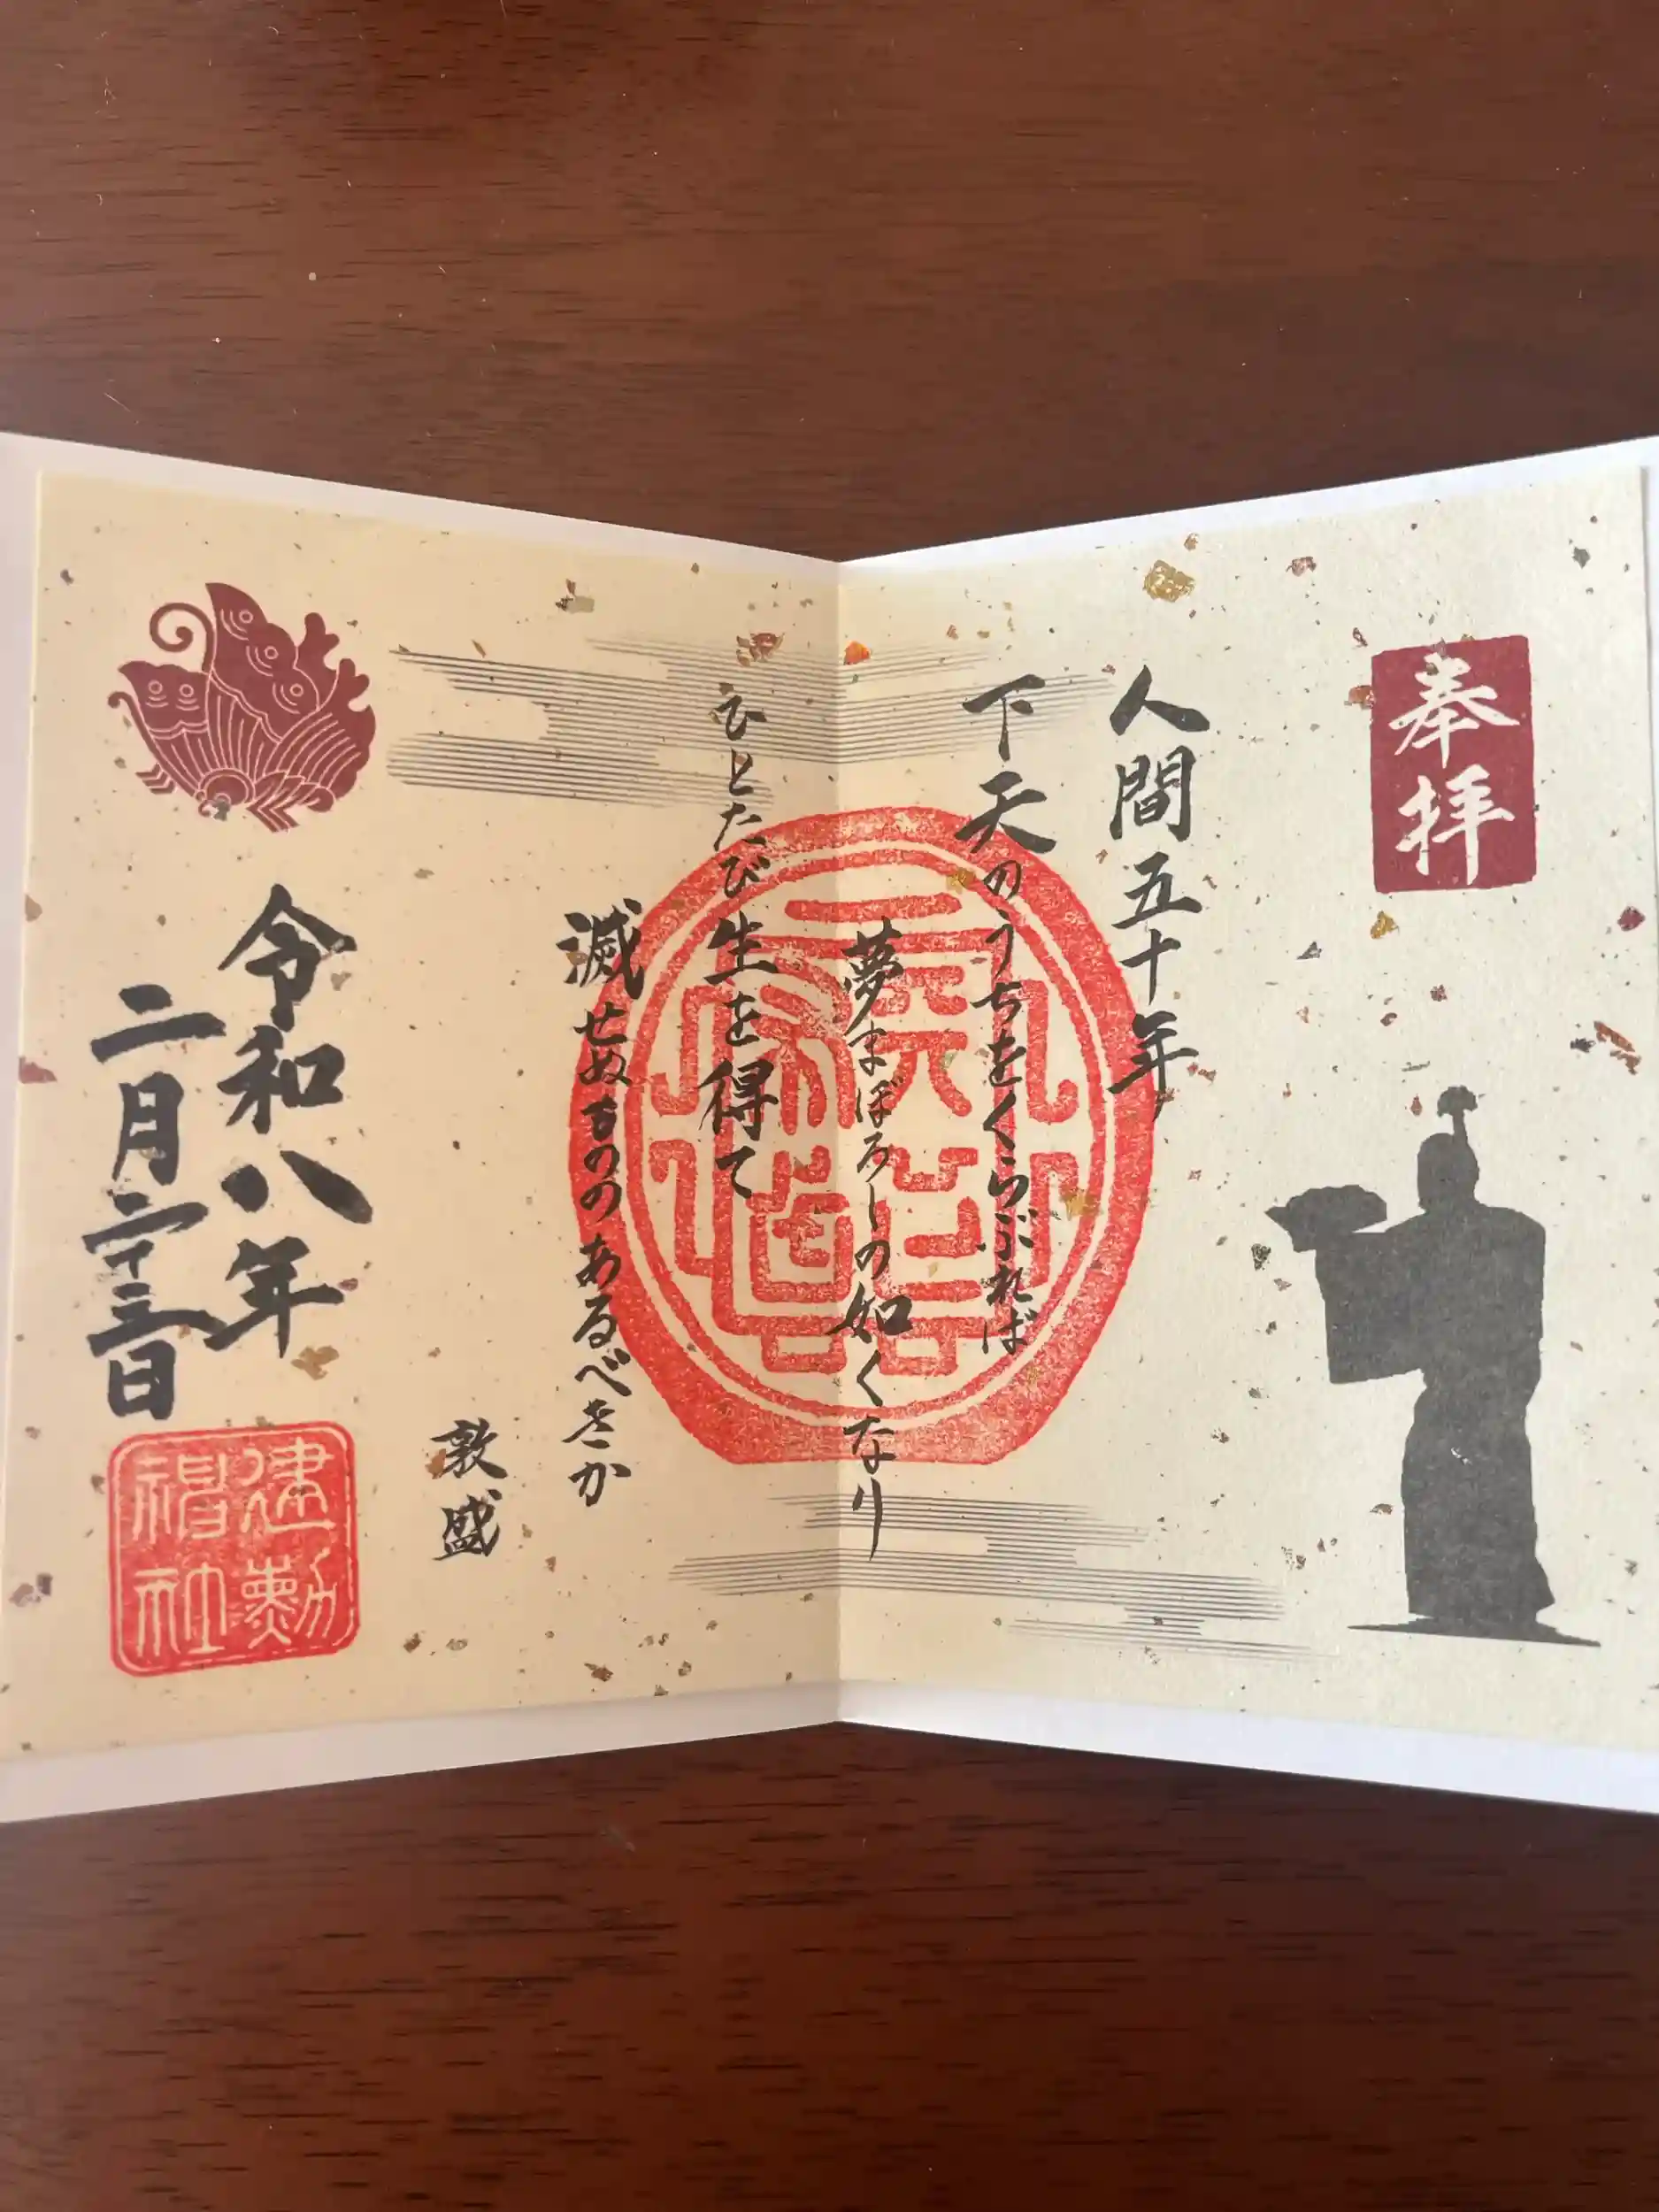 奉拝
人間五十年
下天のうちをくらぶれば
夢まぼろしの如くなり
ひとたび生を得て
滅せぬもののあるべきか
敦盛
令和八年
二月二十三日
建勲
神社